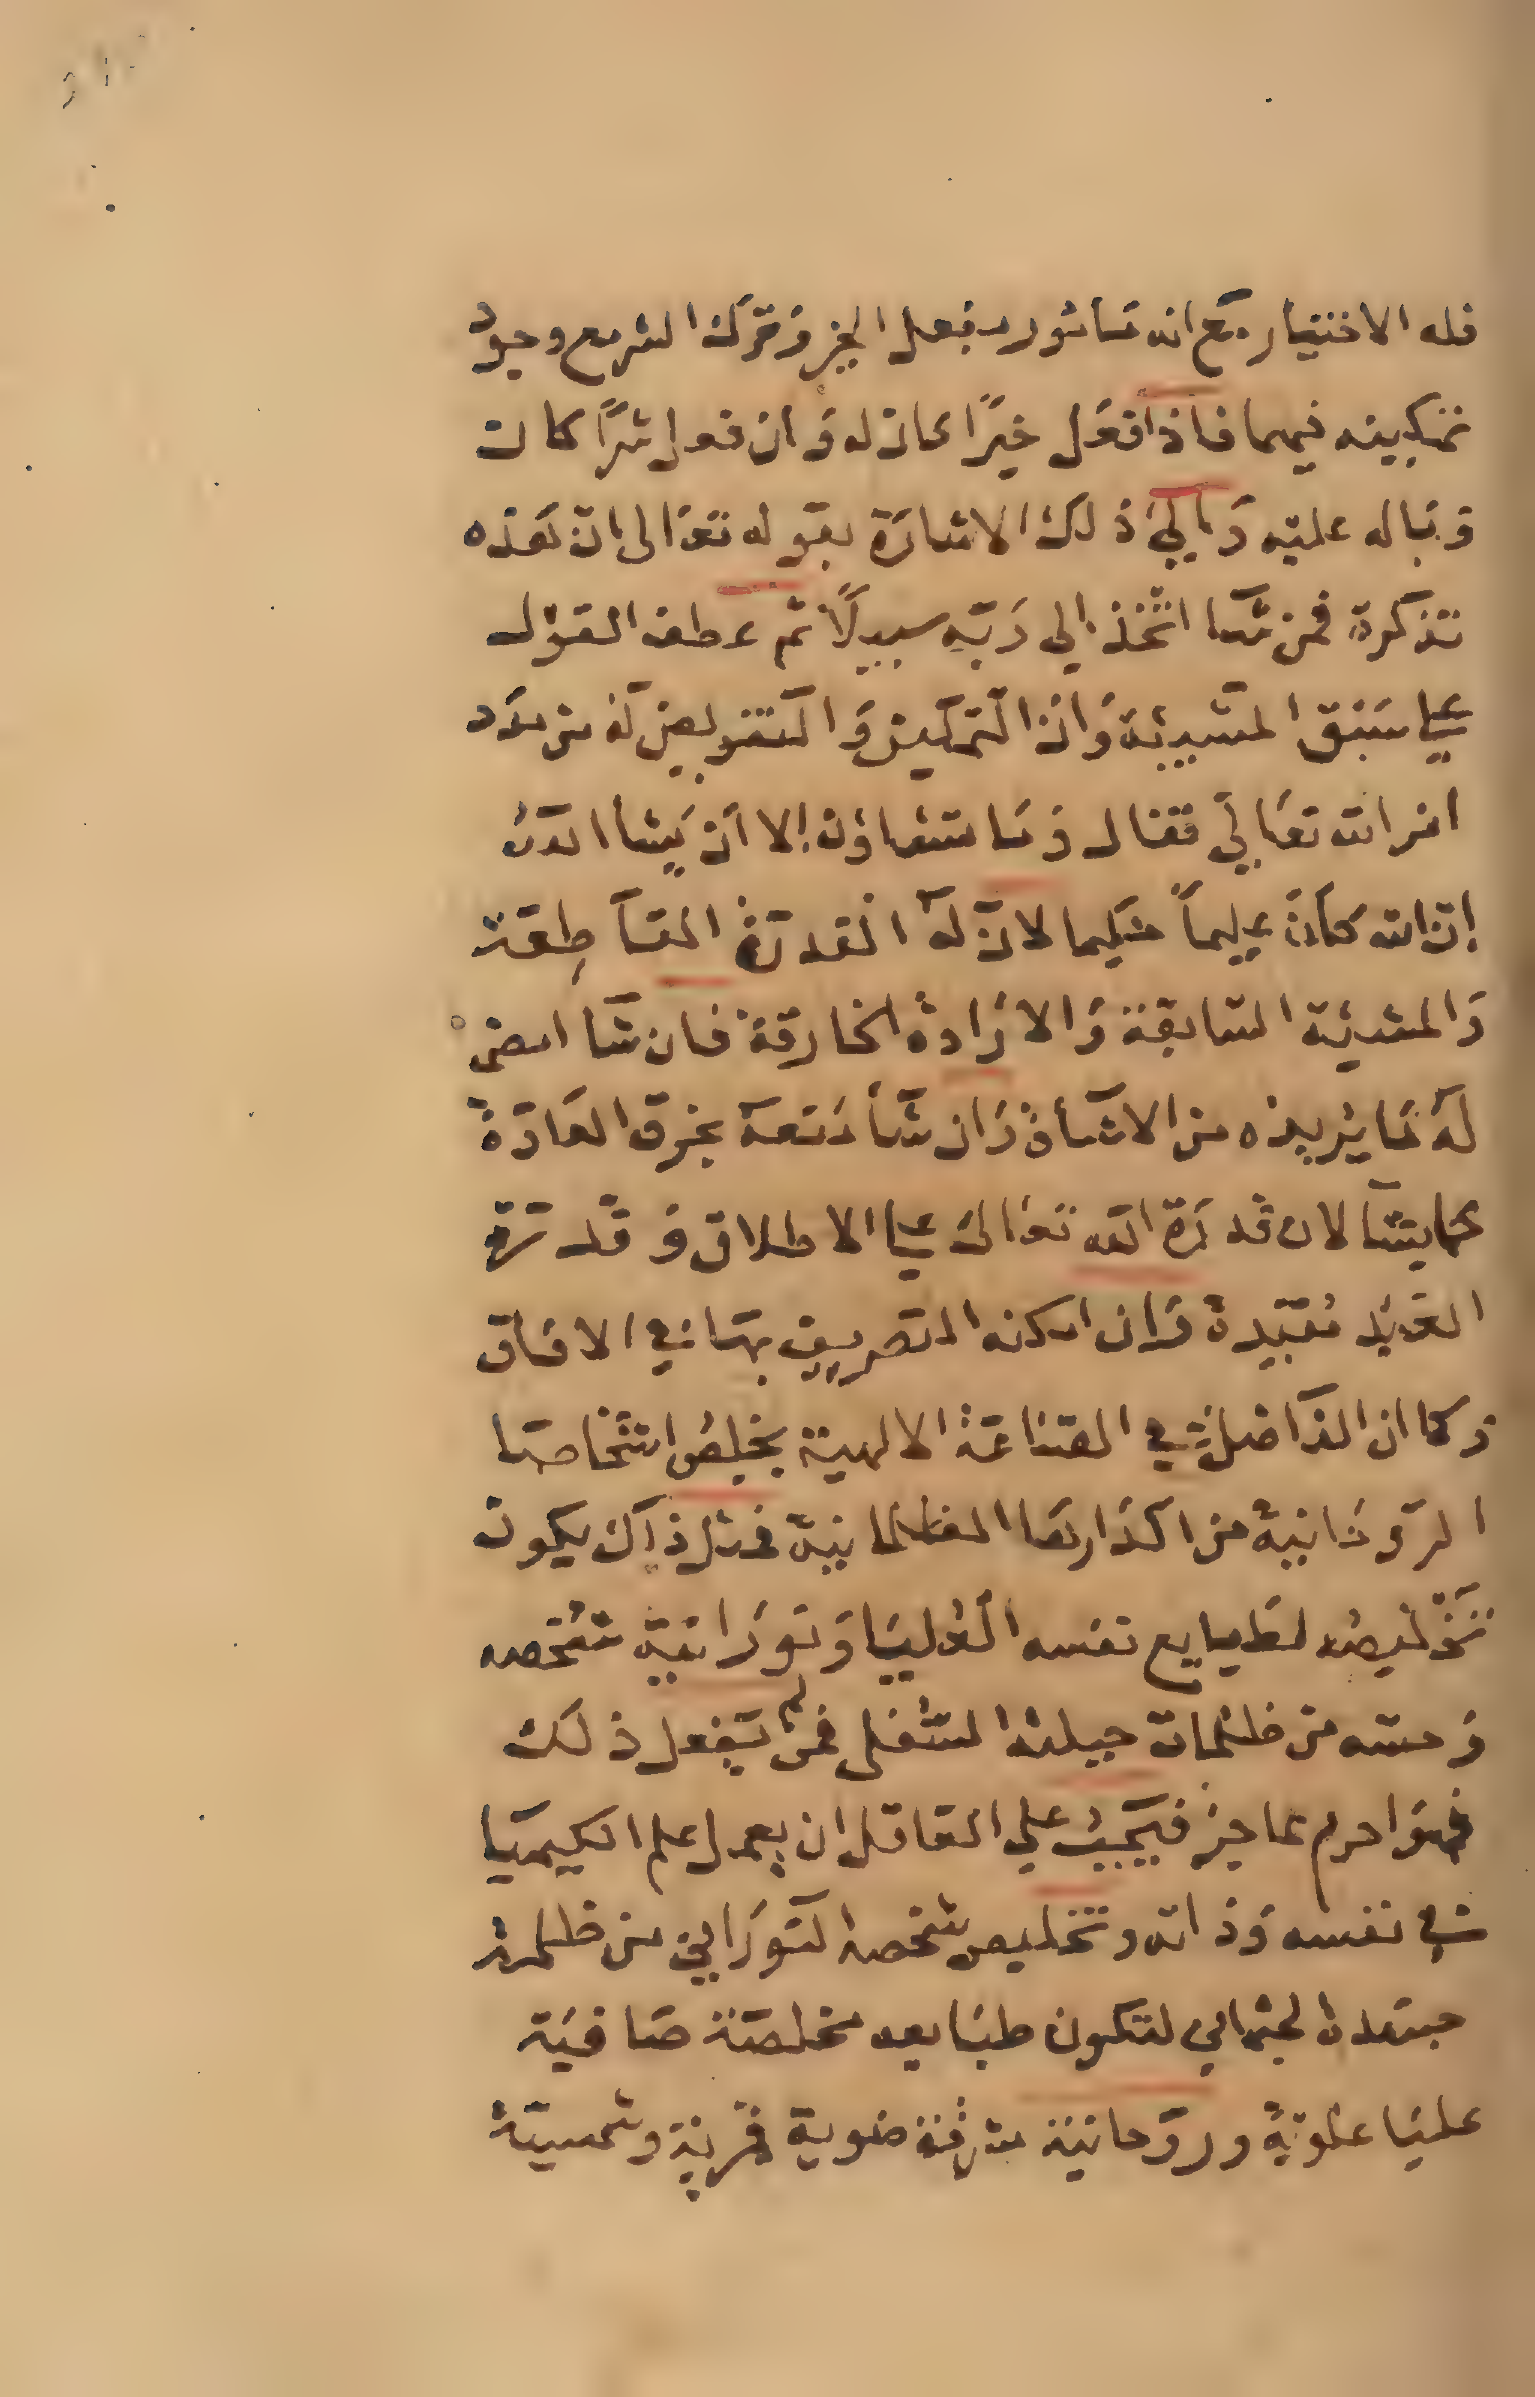 فله الاختيار مع انه مامور بفعل الخير وترك الشر مع وجود
تمكينه فيهما فاذا فعل خيرًا كان له وان فعل شرًا كان
وباله عليه والي ذلك الاشارة بقوله تعالى ان هذه
تذكرة فمن شآ اتخذ إلى ربه سبيلًا ثم عطف القول
علي سبق المشيئة وان التمكين والتفويض له من مدد
امر الله تعالي فقال وما تشاؤن إلا أن يشأ الله
إن الله كان عليماً حكيما لان له القدرة القاطعة
والمشيئة السابقة والارادة الخارقة فان شآ امضى
له ما يريده من الاشآة وان شآ منعه بخرق العادة
كما يشآ لان قدرة الله تعالى علي الاطلاق وقدرة
العبد مقيدة وان امكنه التصريف بها في الافاق
وكما ان الفاضل في الصناعة الالهية يخلص اشخاصها
الروحانية من اكدارها الظلمانية فمثل ذلك يكون
تخليصه لطبايع نفسه العليا ونورانية شخصه
وحسه من ظلمات جبلته السفلى فمن لم يفعل ذلك
فهو احرم عاجز فيجب علي العاقل ان يعمل علم الكيميا
في نفسه وذاته وتخليص شخصه النوراني من ظلمة
جسده الجثماني لتكون طبايعه مخلصة صافية
عليا علوية وروحانية مشرفة ضوية قمرية وشمسية